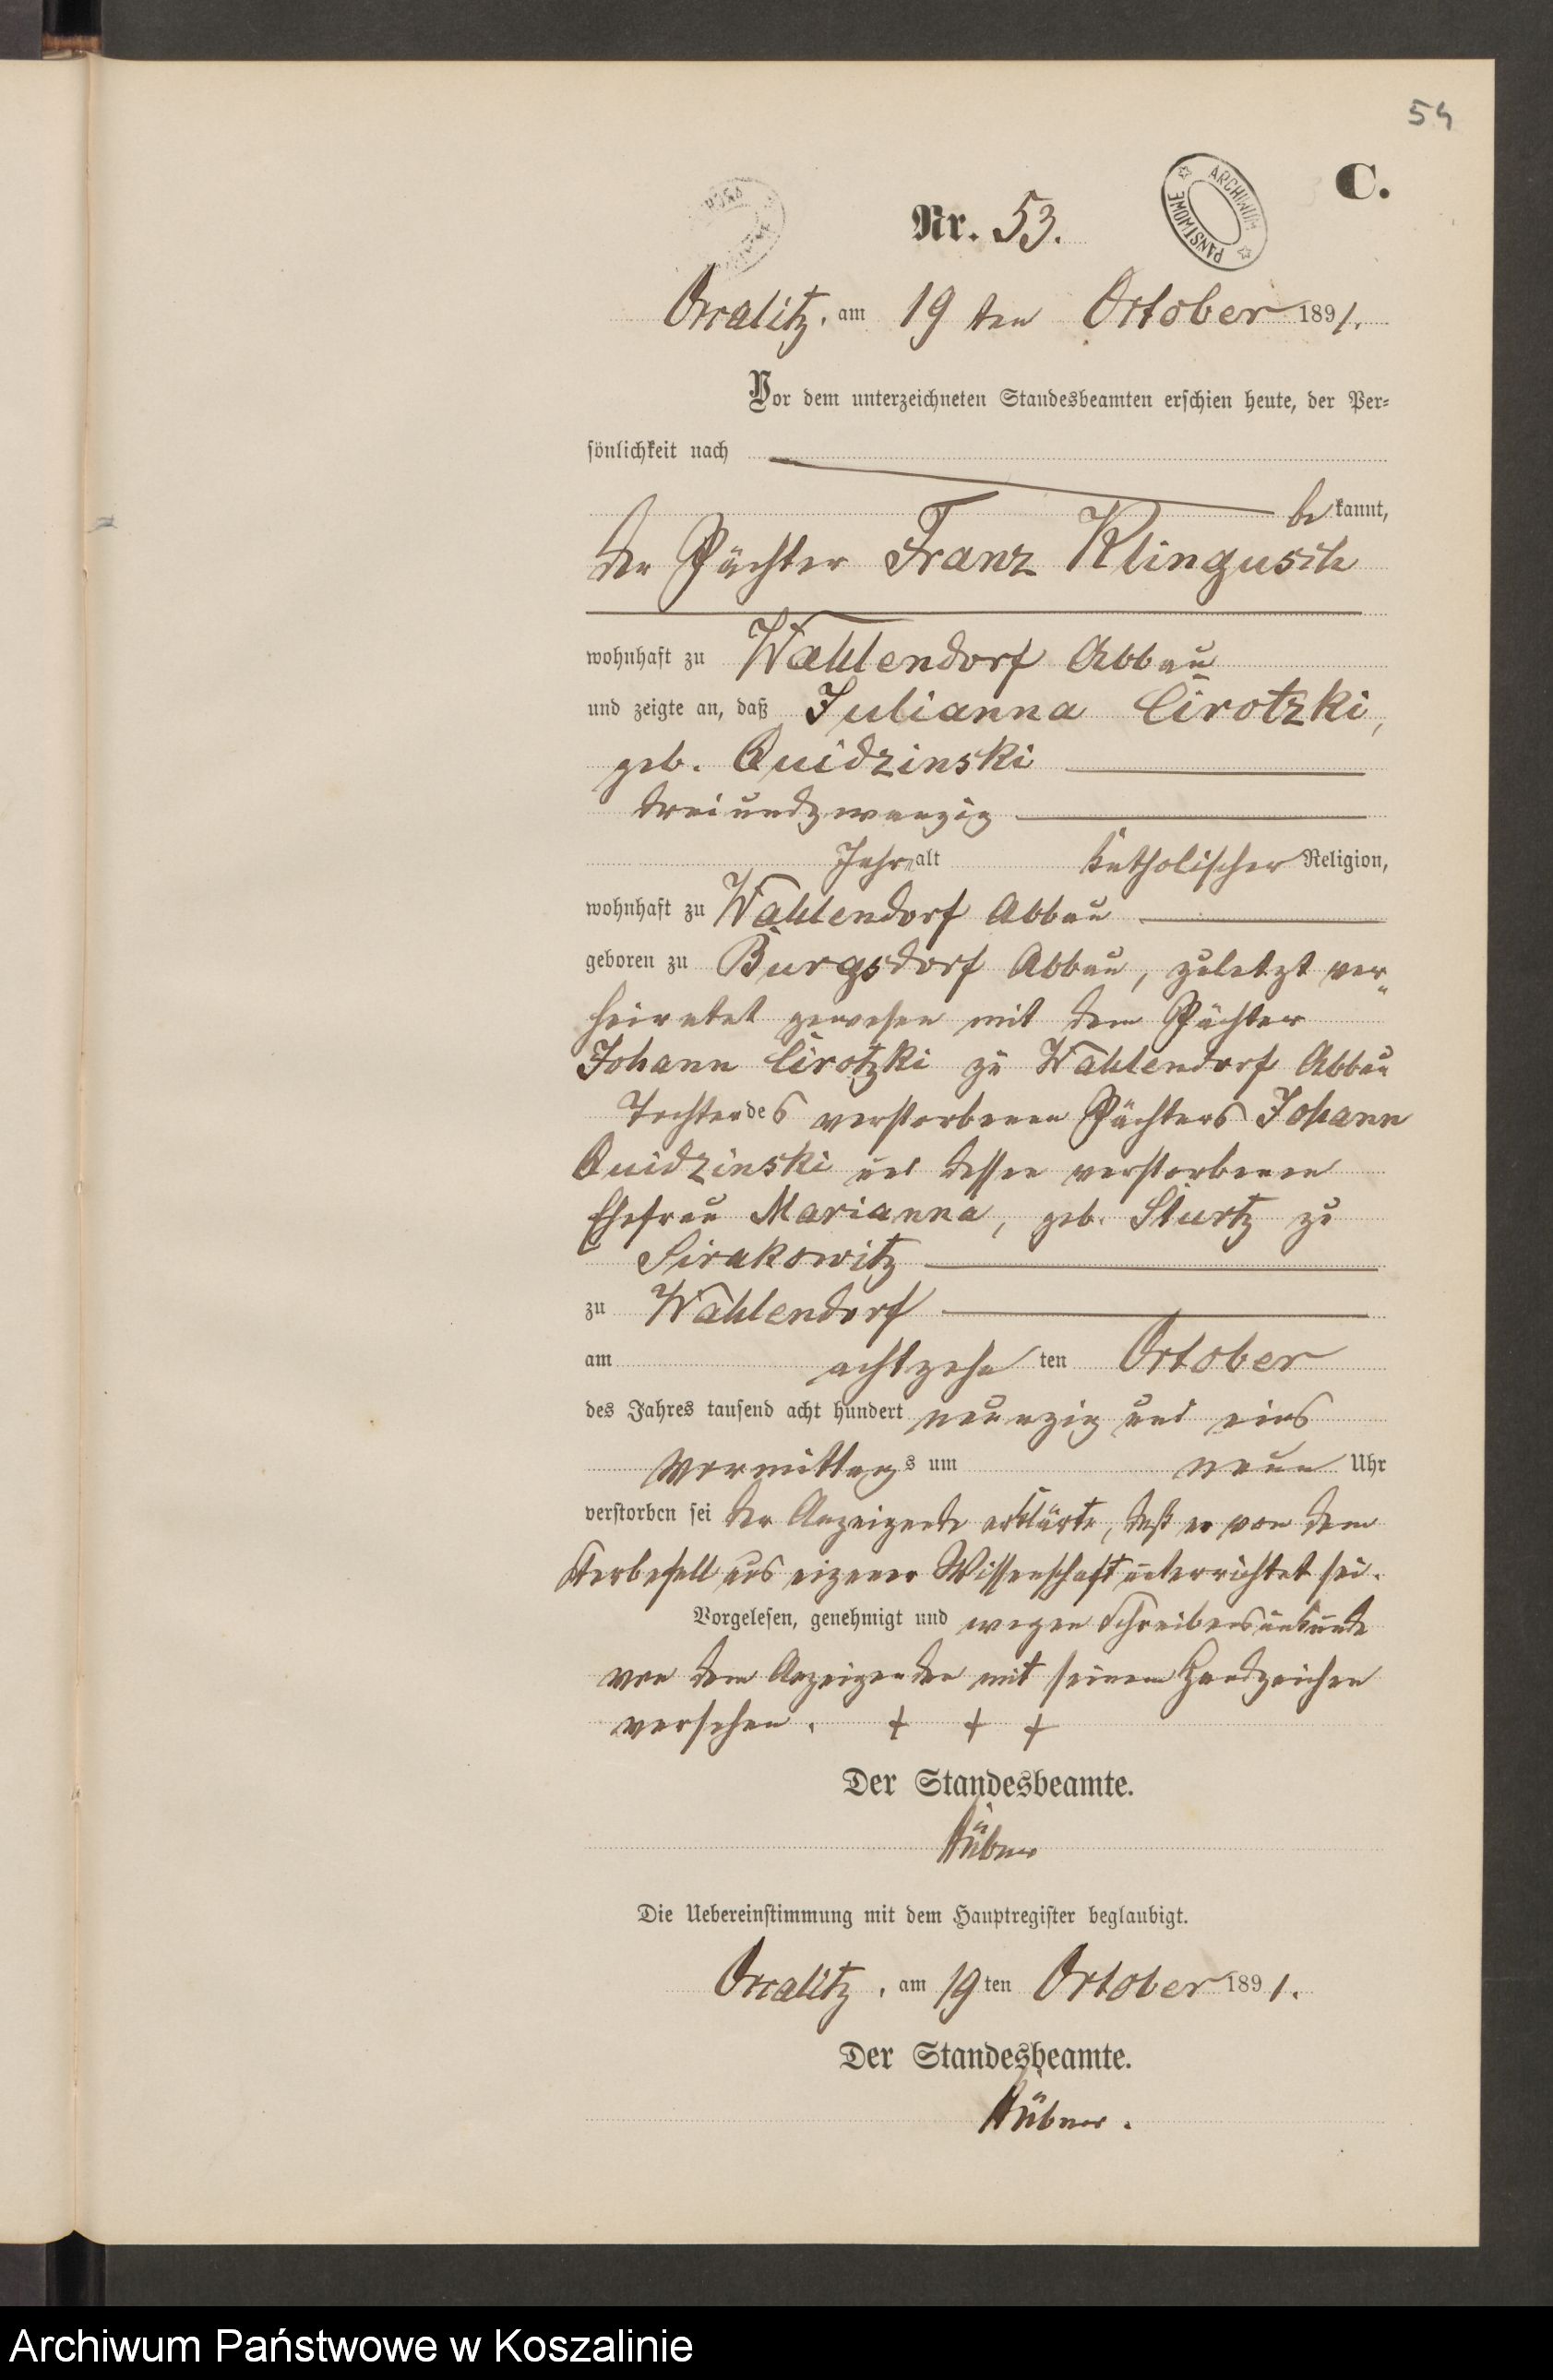 54
C.
ARCHIWUM PAŃSTWOWE
Nr. 53.
am 19 ten October 1891.
Vor dem unterzeichneten Standesbeamten erschien heute, der Per-
sönlichkeit nach
bekannt,
der Pächter Franz Klingusch
wohnhaft zu Wahlendorf Abbau
und zeigte an, daß Julianna Cirotzki,
geb. Quidzinski
dreiundzwanzig
Jahr alt katholischer Religion,
wohnhaft zu Wahlendorf Abbau
geboren zu Burgsdorf Abbau, zuletzt ver-
heiratet gewesen mit dem Pächter
Johann Cirotzki zu Wahlendorf Abbau
Tochter des verstorbenen Pächters Johann
Quidzinski und dessen verstorbenen
Ehefrau Marianna, geb. Sturtz zu
Sirakowitz
zu Wahlendorf
am achtzehn ten October
des Jahres tausend acht hundert neunzig und eins
Vormittags um neun Uhr
verstorben sei der Anzeigende erklärte, daß er von dem
Sterbefall aus eigener Wissenschaft unterrichtet sei.
Vorgelesen, genehmigt und wegen Schreibensunkunde
von dem Anzeigenden mit seinem Handzeichen
versehen. + + +
Der Standesbeamte.
Hübner
Die Uebereinstimmung mit dem Hauptregister beglaubigt.
am 19ten October 1891.
Der Standesbeamte.
Hübner.
Archiwum Państwowe w Koszalinie